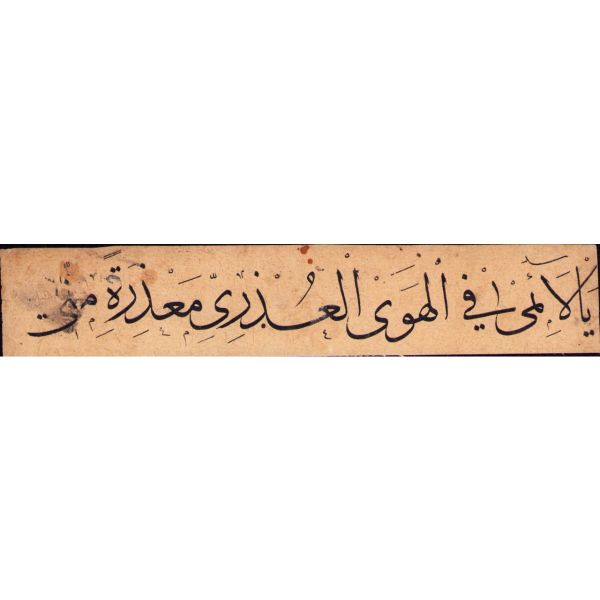 يَا لَآئِمِى فِي الْهَوَى الْعُذْرِيِّ مَعْذِرَةً مِنِّي